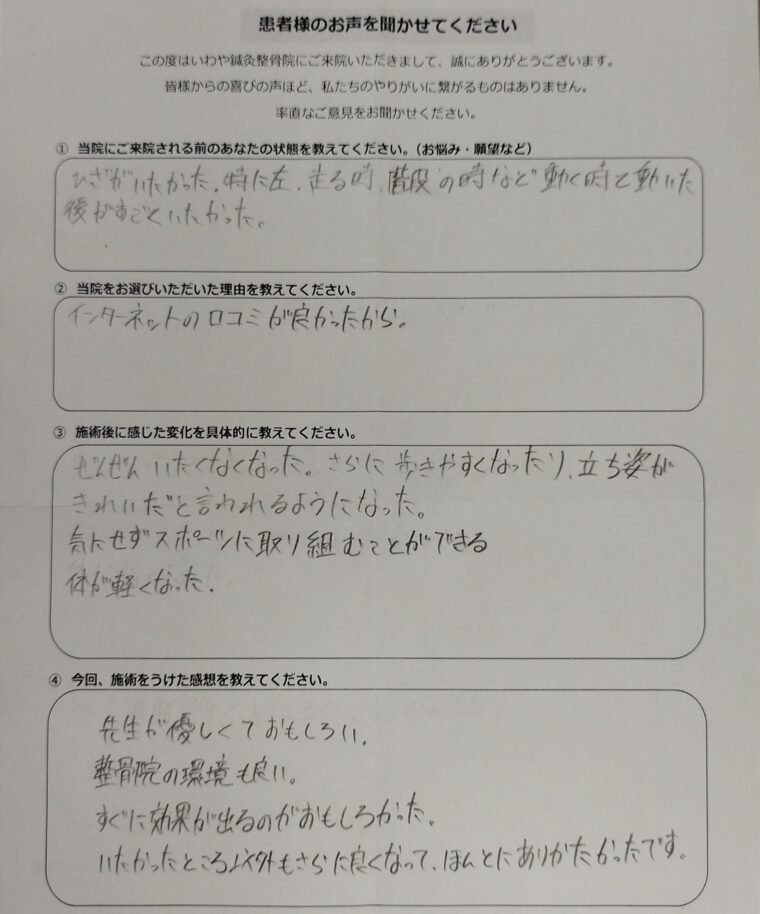 患者様のお声を聞かせてください
この度はいわや鍼灸整骨院にご来院いただきまして、誠にありがとうございます。
皆様からの喜びの声ほど、私たちのやりがいに繋がるものはありません。
率直なご意見をお聞かせください。
① 当院にご来院される前のあなたの状態を教えてください。(お悩み・願望など)
ひざがいたかった。特に左、走る時、階段の時など動く時と動いた
後がすごくいたかった。
② 当院をお選びいただいた理由を教えてください。
インターネットの口コミが良かったから。
③ 施術後に感じた変化を具体的に教えてください。
ぜんぜんいたくなくなった。さらに歩きやすくなったり、立ち姿が
きれいだと言われるようになった。
気にせずスポーツに取り組むことができる
体が軽くなった。
④ 今回、施術をうけた感想を教えてください。
先生が優しくておもしろい。
整骨院の環境も良い。
すぐに効果が出るのがおもしろかった。
いたかったところ以外もさらに良くなって、ほんとにありがたかったです。